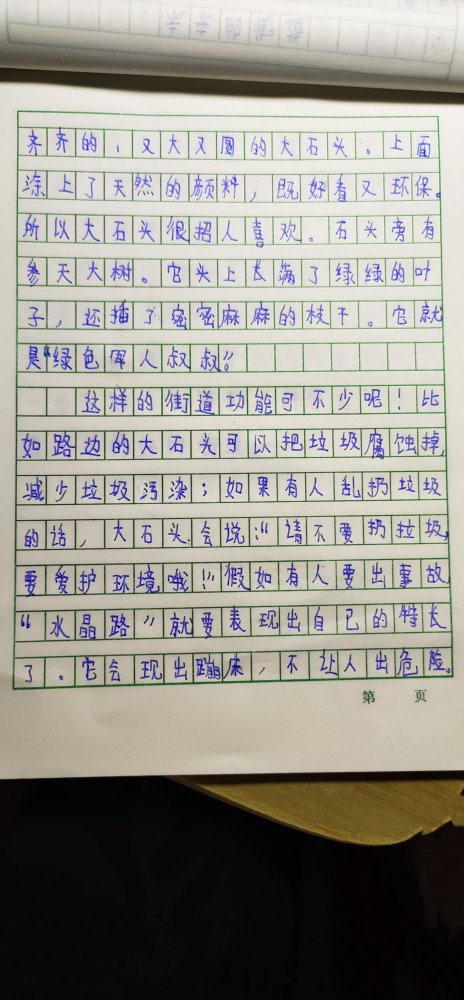 齐齐的，又大又圆的大石头。上面
涂上了天然的颜料，既好看又环保。
所以大石头很招人喜欢。石头旁有
参天大树。它头上长满了绿绿的叶
子，还插了密密麻麻的枝干。它就
是“绿色军人叔叔”。
这样的街道功能可不少呢！比
如路边的大石头可以把垃圾腐蚀掉，
减少垃圾污染；如果有人乱扔垃圾
的话，大石头会说：“请不要扔垃圾，
要爱护环境哦！”假如有人要出事故，
“水晶路”就要表现出自己的特长
了。它会现出蹦床，不让人出危险。
第 页